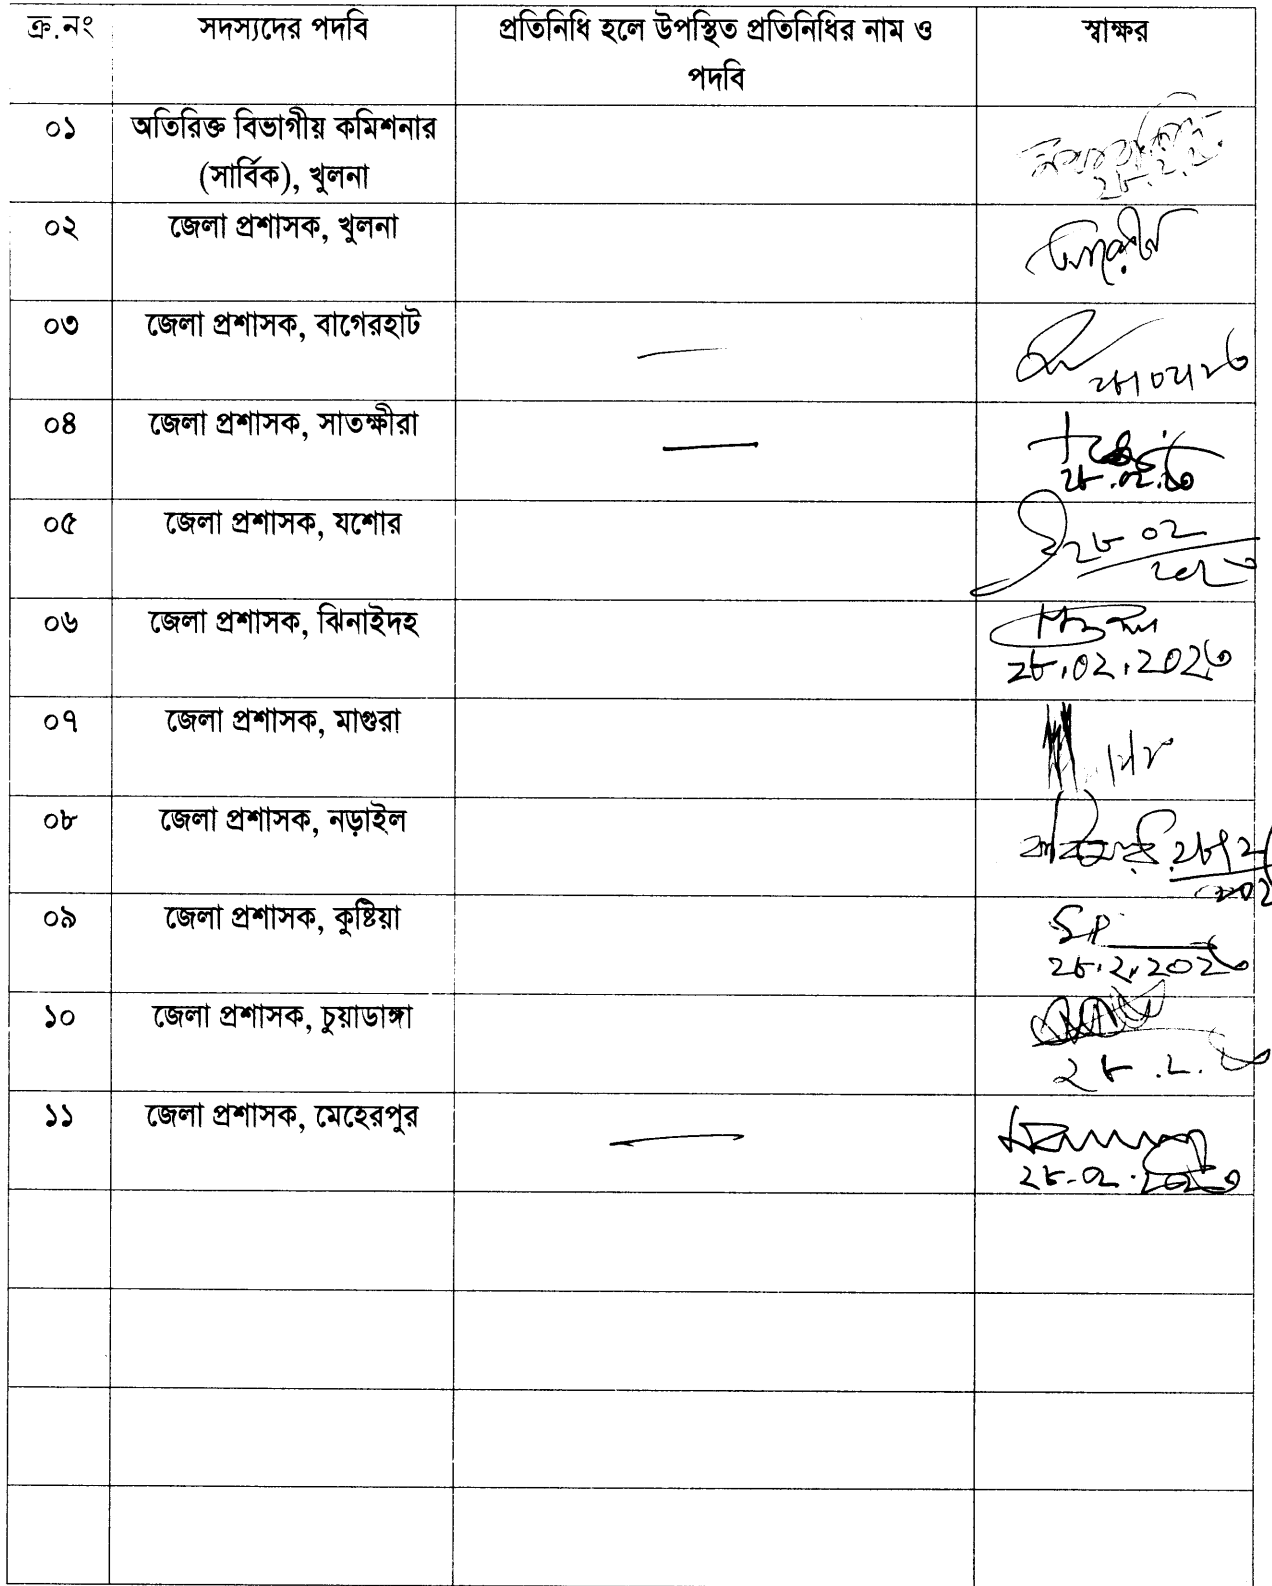 ক্র.নং সদস্যদের পদবি প্রতিনিধি হলে উপস্থিত প্রতিনিধির নাম ও স্বাক্ষর
পদবি
০১ অতিরিক্ত বিভাগীয় কমিশনার
(সার্বিক), খুলনা
০২ জেলা প্রশাসক, খুলনা
০৩ জেলা প্রশাসক, বাগেরহাট
০৪ জেলা প্রশাসক, সাতক্ষীরা
২৮.০২.২৩
০৫ জেলা প্রশাসক, যশোর
২৮ ০২
০৬ জেলা প্রশাসক, ঝিনাইদহ
২৮.০২.২০২৩
০৭ জেলা প্রশাসক, মাগুরা
০৮ জেলা প্রশাসক, নড়াইল
০৯ জেলা প্রশাসক, কুষ্টিয়া
২৮.২.২০২৩
১০ জেলা প্রশাসক, চুয়াডাঙ্গা
২৮.২.২৩
১১ জেলা প্রশাসক, মেহেরপুর
২৮.০২.২০২৩